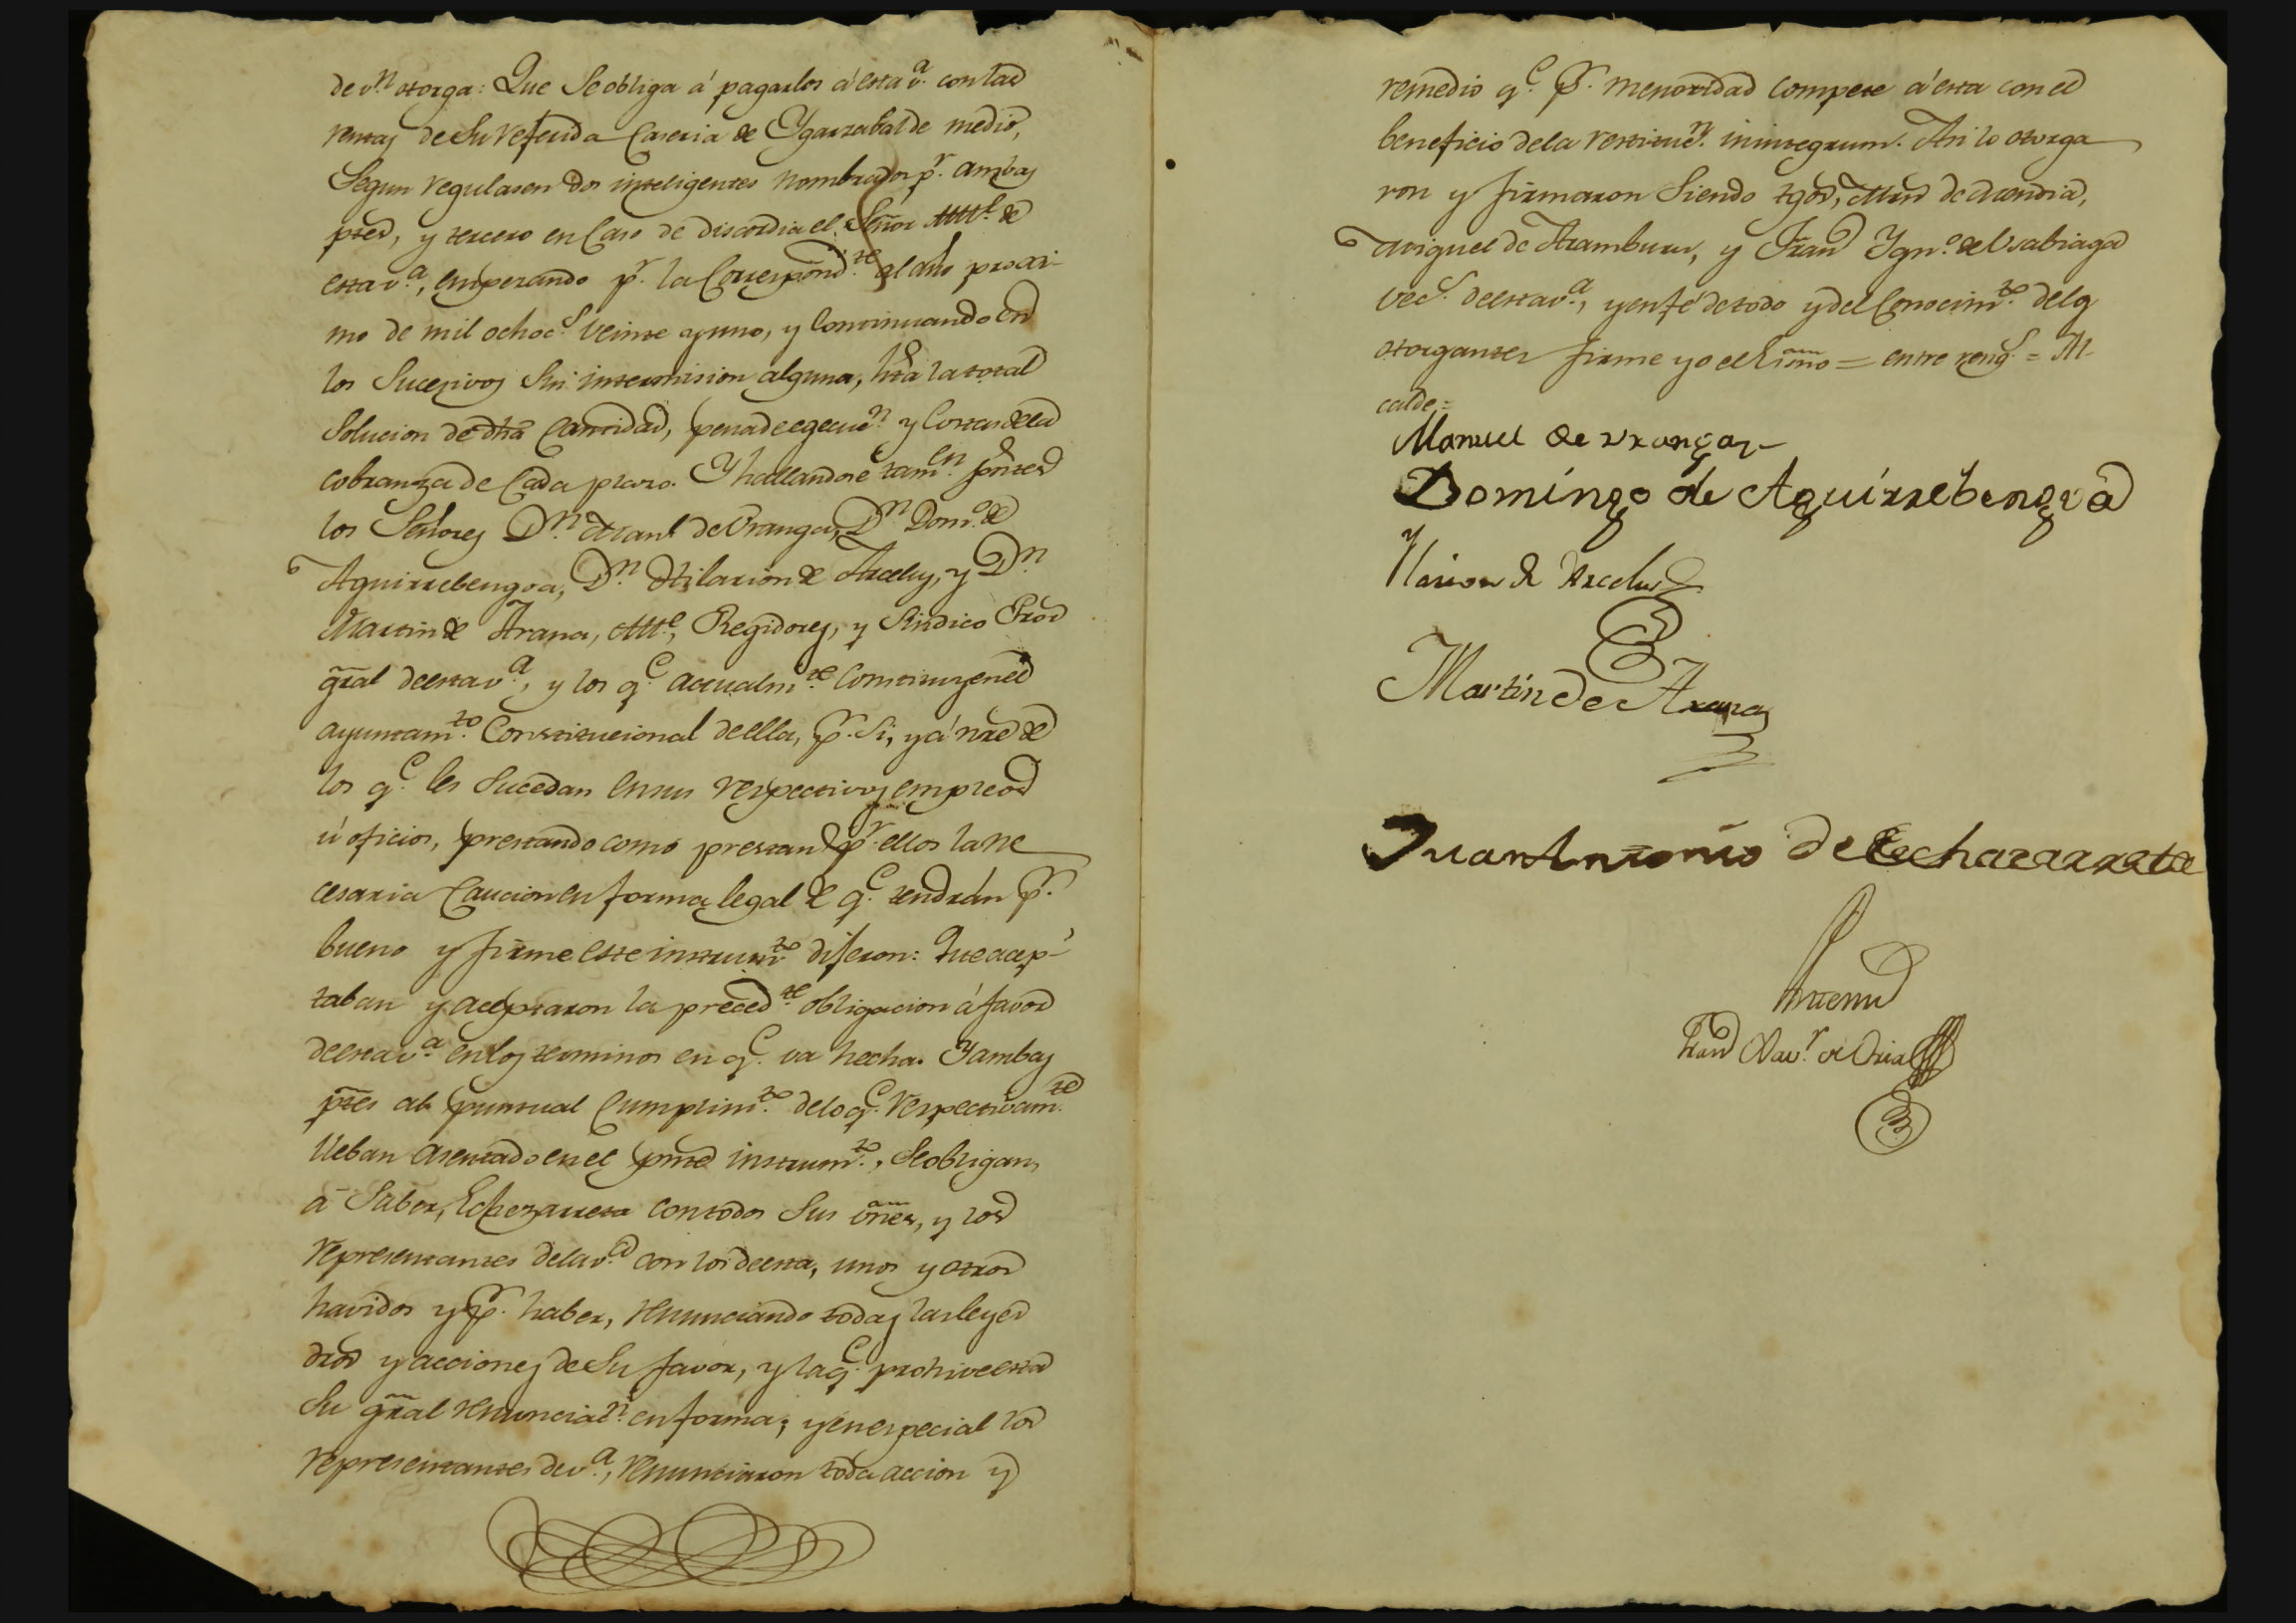 de v.n otorga: Que Se obliga á pagarlos á esta v.a con las
rentas de Su referida Caseria de Ygarzabal de medio,
Segun regulasen dos inteligentes nombrados p.r ambas
ptes, y tercero en Caso de discordia el Señor Alc.e de
esta v.a, empezando p.r la Correspond.te al año proxi-
mo de mil ochoc.s veinte y uno, y Continuando en
los Sucesivos Sin intermision alguna, hta la total
Solucion de dha Cantidad, pena de egecuc.n y Costas de la
cobranza de Cada plazo. Y hallandose tam.en prtes
los Señores D.n Man.l de Vranga, D.n Dom.o de
Aguirrebengoa, D.n Hilarion de Arcelus, y D.n
Martin de Arana, Alc.e, Regidores, y Sindico Pror
gral de esta v.a, y los q.e actualm.te Constituyen el
ayuntam.to Constitucional de ella, p.r Si, y á nre de
los q.e les Sucedan en sus respectivos empleos
ú oficios, prestando como prestan p.r ellos la ne
cesaria Caucion en forma legal de q.e tendrán p.r
bueno y firme este instrum.to dijeron: Que acep-
taban y aceptaron la preced.te obligacion á favor
de esta v.a en los terminos en q.e va hecha. Y ambas
ptes al puntual Cumplim.to de lo q.e respectivam.te
lleban asentado en el pnte instrum.to, Se obligan,
á Saber, Echezarreta con todos Sus vnes, y los
representantes de la v.a con los de esta, unos y otros
havidos y p.r haber, renunciando todas las leyes
dros y acciones de Su favor, y la q.e prohive esta
Su gral renunciac.n en forma; y en especial los
representantes de v.a, renunciaron toda accion y
remedio q.e p.r menoridad compete á esta con el
beneficio de la restituc.n in integrum. Asi lo otorga
ron y firmaron Siendo tgos,
Miguel de Aramburu, y Fran.co Ygn.o de Vsabiaga
vec.s de esta v.a, y en fé de todo y del Conocim.to de los
otorgantes firme yo el Esno = entre reng.s = Al-
calde =
Manuel de Vranga
Domingo de Aguirrebengoa
Ylarion de Arcelus
Martin de Arana
Juan Antonio de Echazarreta
Ante mi
Fran.co Xav.r de Oria